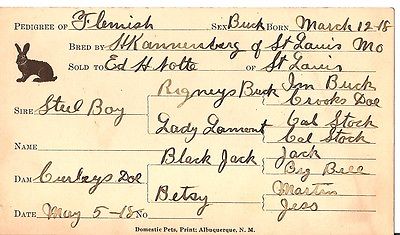 PEDIGREE OF Flemish SEX Buck BORN March 12-18
BRED BY H Kannenberg of St Louis Mo
SOLD TO Ed H Nolte OF St Louis
Rigneys Buck Jim Buck
Crooks Doe
SIRE Steel Boy
Lady Lamont Cal Stock
Cal Stock
NAME
Black Jack Jack
Big Bell
DAM Curleys Doe
Betsy Martin
Jess
DATE May 5-18 No
Domestic Pets, Print: Albuquerque, N. M.